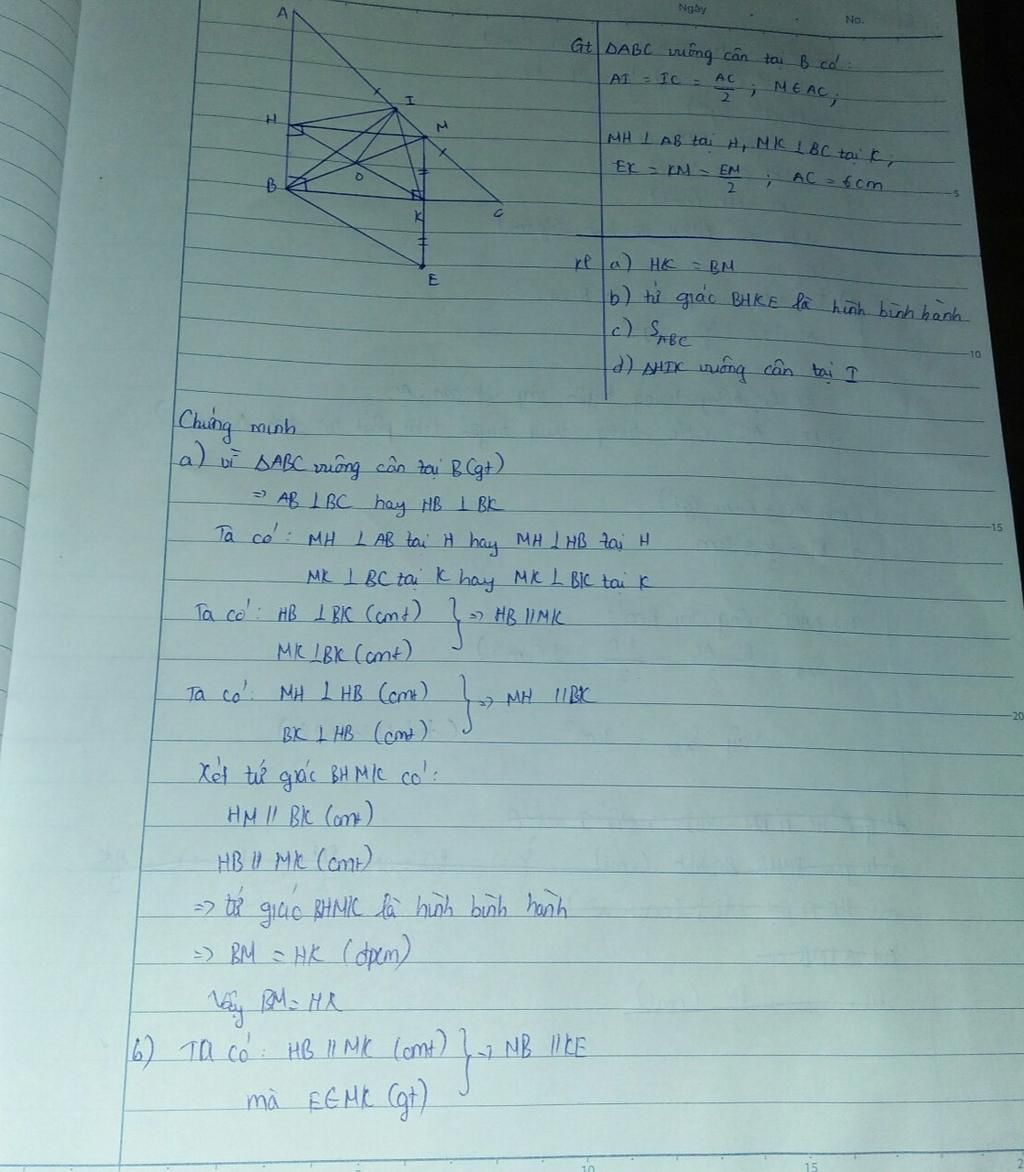 Ngày
No.
A
H
I
M
O
B
K
C
E
Gt ΔABC vuông cân tại B có:
AI = IC = AC/2 ; M ∈ AC;
MH ⊥ AB tại H, MK ⊥ BC tại K,
EK = KM = EM/2 ; AC = 6cm
5
kl a) HK = BM
b) tứ giác BHKE là hình bình hành
c) S_ABC
10
d) ΔHIK vuông cân tại I
Chứng minh
a) vì ΔABC vuông cân tại B (gt)
=> AB ⊥ BC hay HB ⊥ BK
15
Ta có: MH ⊥ AB tại H hay MH ⊥ HB tại H
MK ⊥ BC tại K hay MK ⊥ BK tại K
Ta có: HB ⊥ BK (cmt) } => HB // MK
MK ⊥ BK (cmt)
Ta có: MH ⊥ HB (cmt) } => MH // BK
20
BK ⊥ HB (cmt)
Xét tứ giác BHMK có:
HM // BK (cmt)
HB // MK (cmt)
=> tứ giác BHMK là hình bình hành
=> BM = HK (đpcm)
Vậy BM = HK
b) Ta có: HB // MK (cmt) } => HB // KE
mà E ∈ MK (gt)
10
15
2